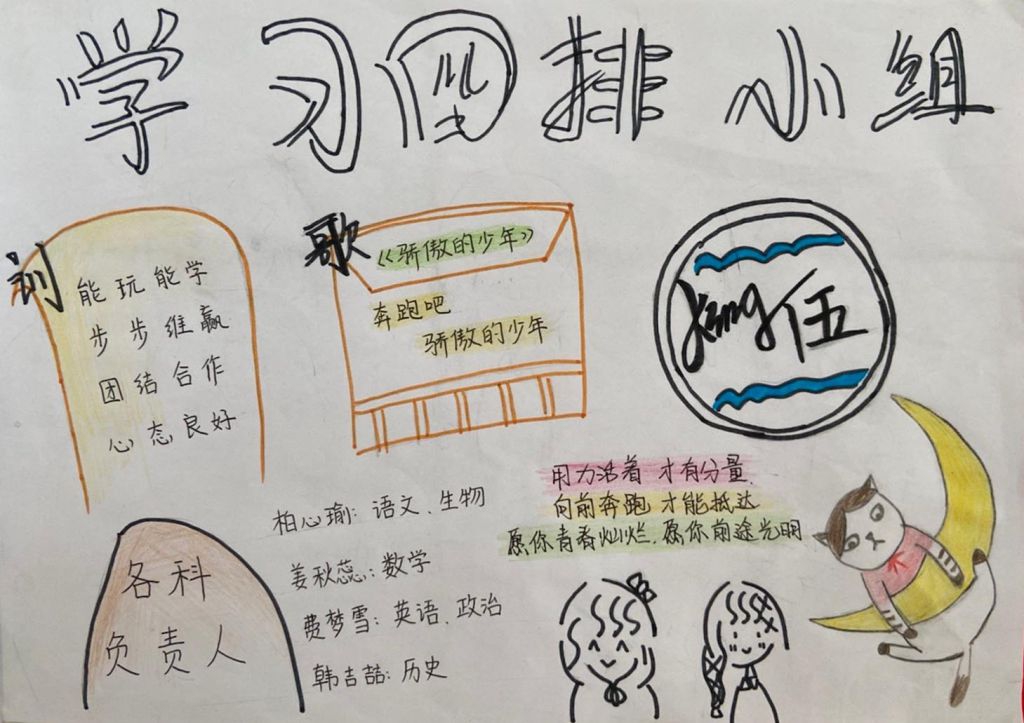 学习团排小组
训
能玩能学
步步维赢
团结合作
心态良好
歌
《骄傲的少年》
奔跑吧
骄傲的少年
King伍
用力活着 才有分量.
向前奔跑 才能抵达
愿你青春灿烂.愿你前途光明
各科
负责人
柏心瑜：语文、生物
姜秋蕊：数学
费梦雪：英语、政治
韩吉喆：历史